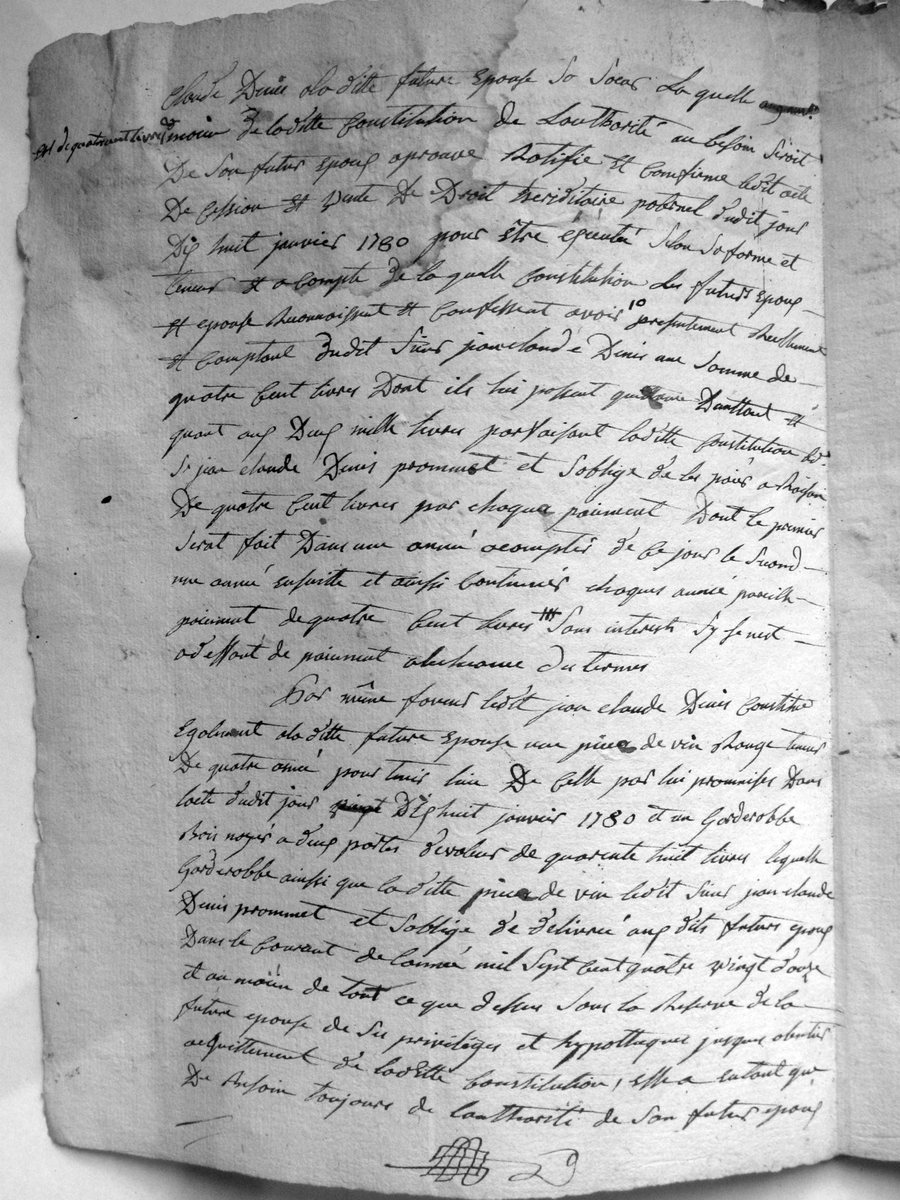 Claude Denis a laditte future Epouse Sa Soeur Laquelle
au moien de laditte Constitution de Lauthorité au besoin Seroit
De Son futur Epoux aprouve Ratifie et Comfirme ledit acte
De Cession et Vente De Droit hereditaire paternel dudit jour
Dix huit janvier 1780 pour Etre éxécuté Selon Sa forme et
teneur et a Compte de laquelle Constitution Les futurs Epoux
et epouse Reconnoissent et Confessent avoir presentement Reellement
et Comptant dudit Sieur jean claude Denis une Somme de
quatre Cent livres Dont ils lui passent quittance Dauttant et
quant aux Deux mille livres parfaisant laditte Constitution led.
Sr jean claude Denis prommet et Soblige de les païer a Raison
De quatre Cent livres par chaque paiment Dont le premier
Serat fait Dans une année a compter de Ce jour le Second
une année ensuitte et ainsi Continuer chaques année pareille
paiment de quatre Cent livres Sans interests Sy Ce nest
a deffaut de paiment a lecheance des termes
Par même faveur ledit jean claude Denis Constitue
Egalement a laditte future Epouse une piece de vin Rouge tenur
De quatre année pour tenir lieu De Celle par lui prommises Dans
lacte dudit jour Dix huit janvier 1780 et un Garderobbe
Bois noyer a deux portes de valeur de quarente huit livres laquelle
Garderobbe ainsi que la ditte piece de vin ledit Sieur jean claude
Denis prommet et Soblige de delivrer aux dits futurs epoux
Dans le Courant de lannée mil Sept Cent quatre vingt douze
et au moïen de tout ce que dessus Sous la Reserve de la
future epouse de Ses privilèges et hypotheques jusques
acquittement de laditte Constitution, Elle a entant que
De Besoin toujours de lauthorité de Son futur epoux
29